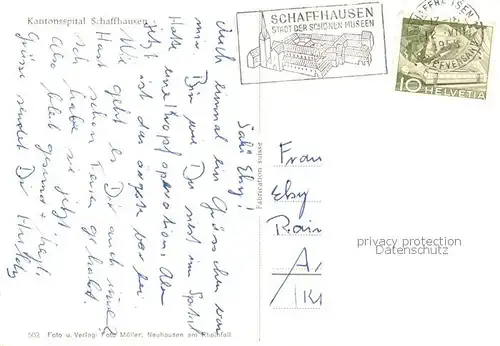 Kantonsspital Schaffhausen
SCHAFFHAUSEN
STADT DER SCHÖNEN MUSEEN
10 HELVETIA
Salü Eby!
Auch einmal ein Grüsschen von
mir. Bin wie Du siest im Spital
Hatte eine Kropfoperation. Aber
jetzt ist das ärgste vorbei.
Wie geht es Dir auch immer?
Hast schon Ferien gehabt.
Ich habe sie jetzt.
Also bleib gesund +
Grüsse sendet Dir
Fabrication suisse
Frau
Eby
Rain
privacy protection
Datenschutz
502 Foto u. Verlag: Foto Müller, Neuhausen am Rheinfall